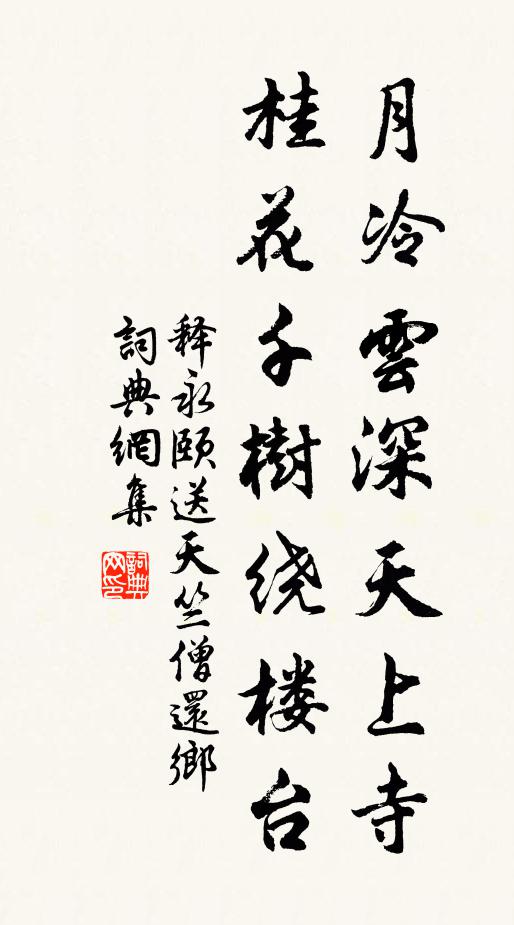 月冷雲深天上寺
桂花千樹绕楼台
释永颐送天竺僧還鄉
詞典網集
詞典
网印